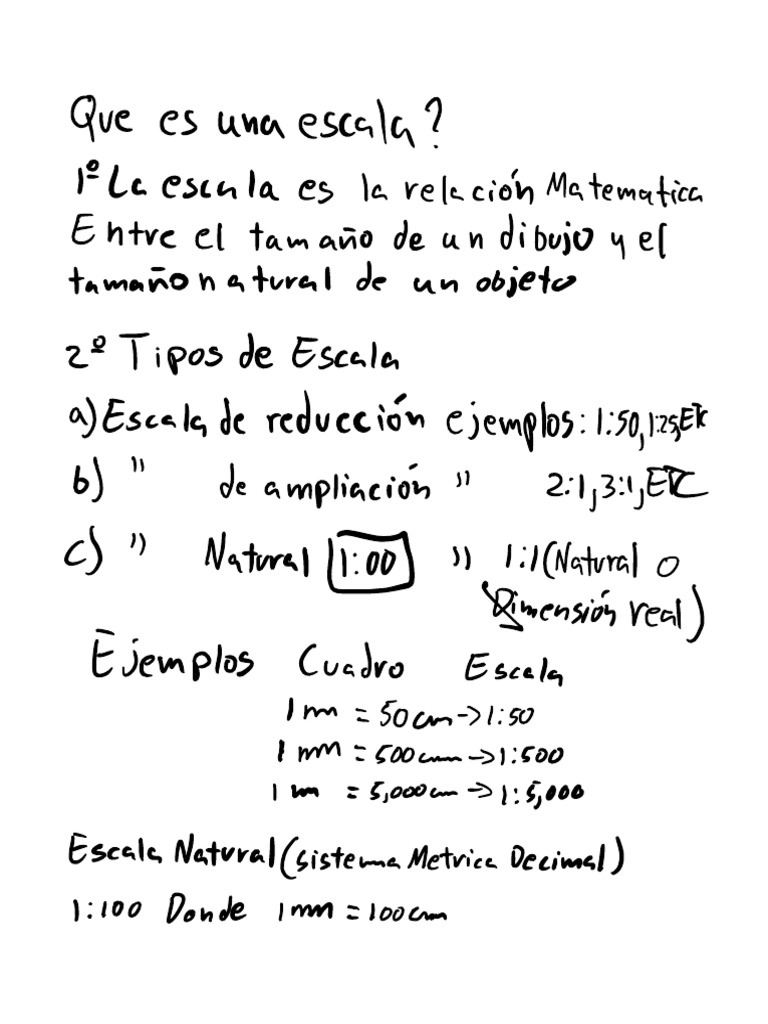 Que es una escala?
1º La escala es la relación Matematica
Entre el tamaño de un dibujo y el
tamaño natural de un objeto
2º Tipos de Escala
a) Escala de reducción ejemplos: 1:50, 1:25, ETC
b) " de ampliación " 2:1, 3:1, ETC
c) " Natural 1:00 " 1:1 (Natural o
Dimensión real)
Ejemplos Cuadro Escala
1 m = 50 cm -> 1:50
1 mm = 500 cm -> 1:500
1 m = 5,000 cm -> 1:5,000
Escala Natural (sistema Metrica Decimal)
1:100 Donde 1 mm = 100 cm